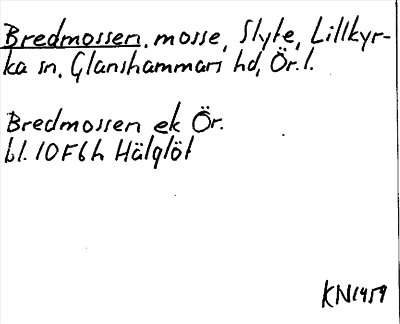 Bredmossen, mosse, Slyte, Lillkyr-
ka sn, Glanshammars hd, Ör. l.
Bredmossen ek Ör.
bl. 10F6h Hälglöt
KN1959